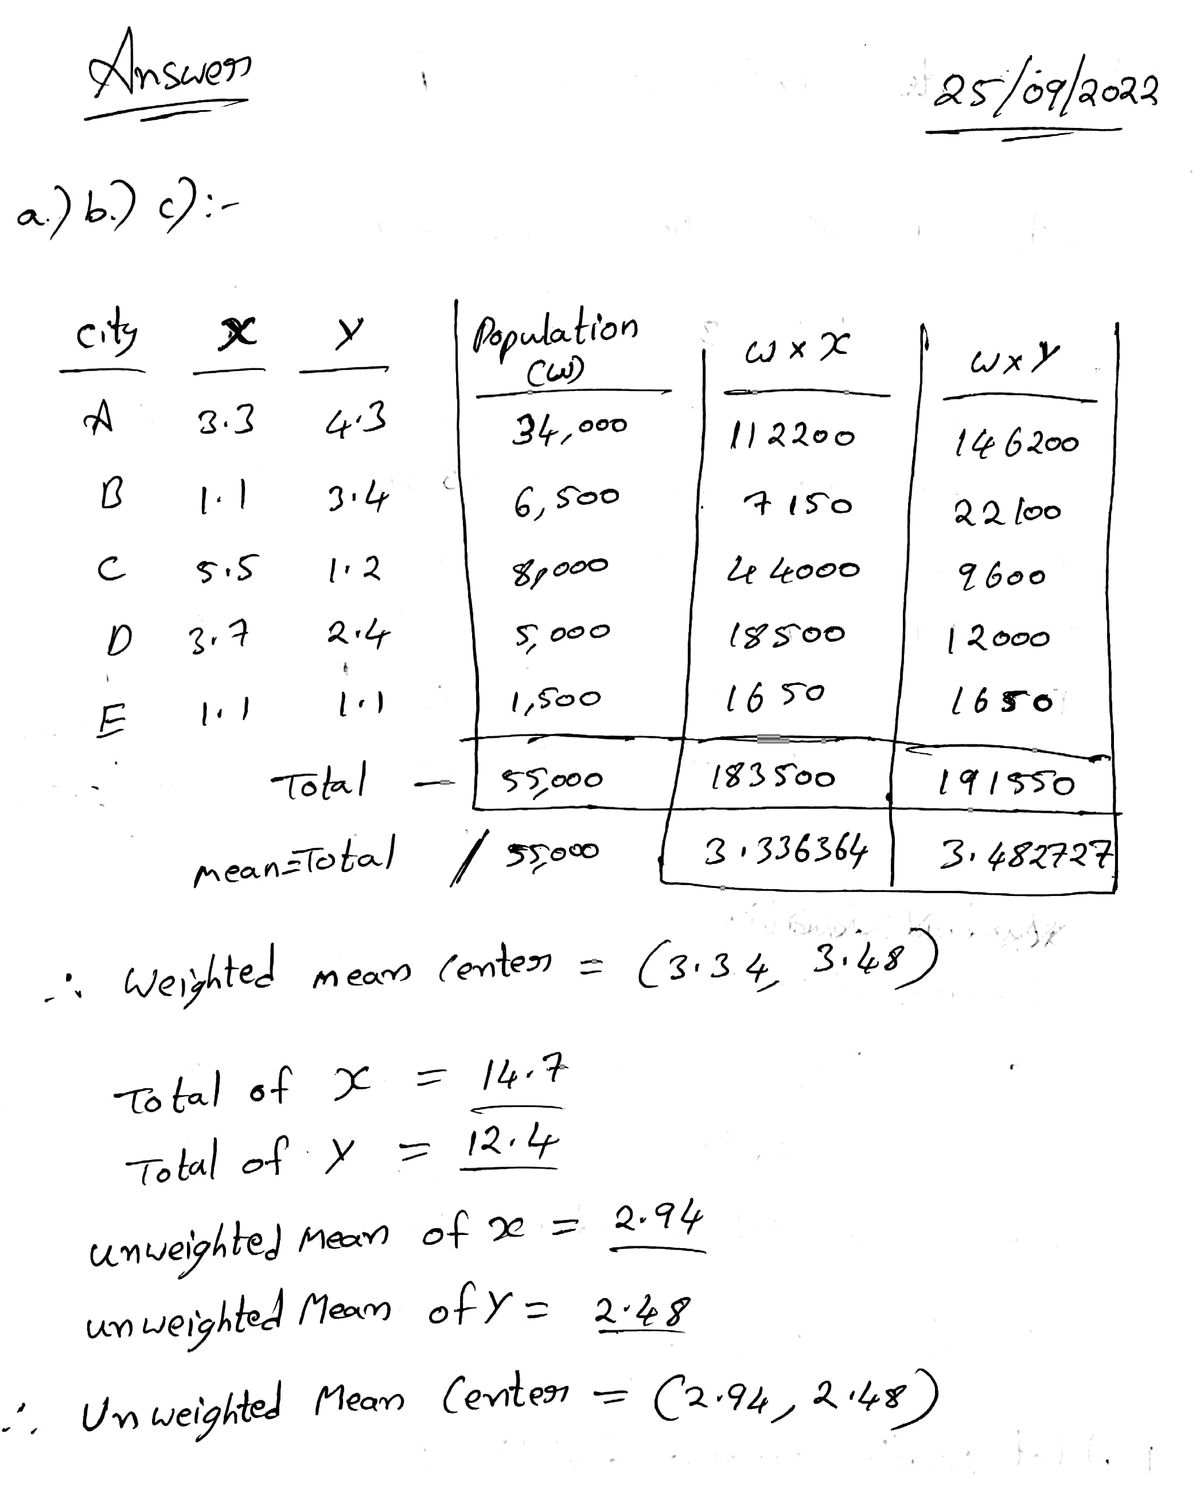 Answer
25/09/2022
a.) b.) c):-
City x y Population (w) w x x w x y
A 3.3 4.3 34,000 112200 146200
B 1.1 3.4 6,500 7150 22100
C 5.5 1.2 8,000 44000 9600
D 3.7 2.4 5,000 18500 12000
E 1.1 1.1 1,500 1650 1650
Total - 55,000 183500 191550
mean=Total / 55,000 3.336364 3.482727
∴ Weighted mean Center = (3.34, 3.48)
Total of x = 14.7
Total of y = 12.4
unweighted Mean of x = 2.94
unweighted Mean of y = 2.48
∴ Unweighted Mean Center = (2.94, 2.48)